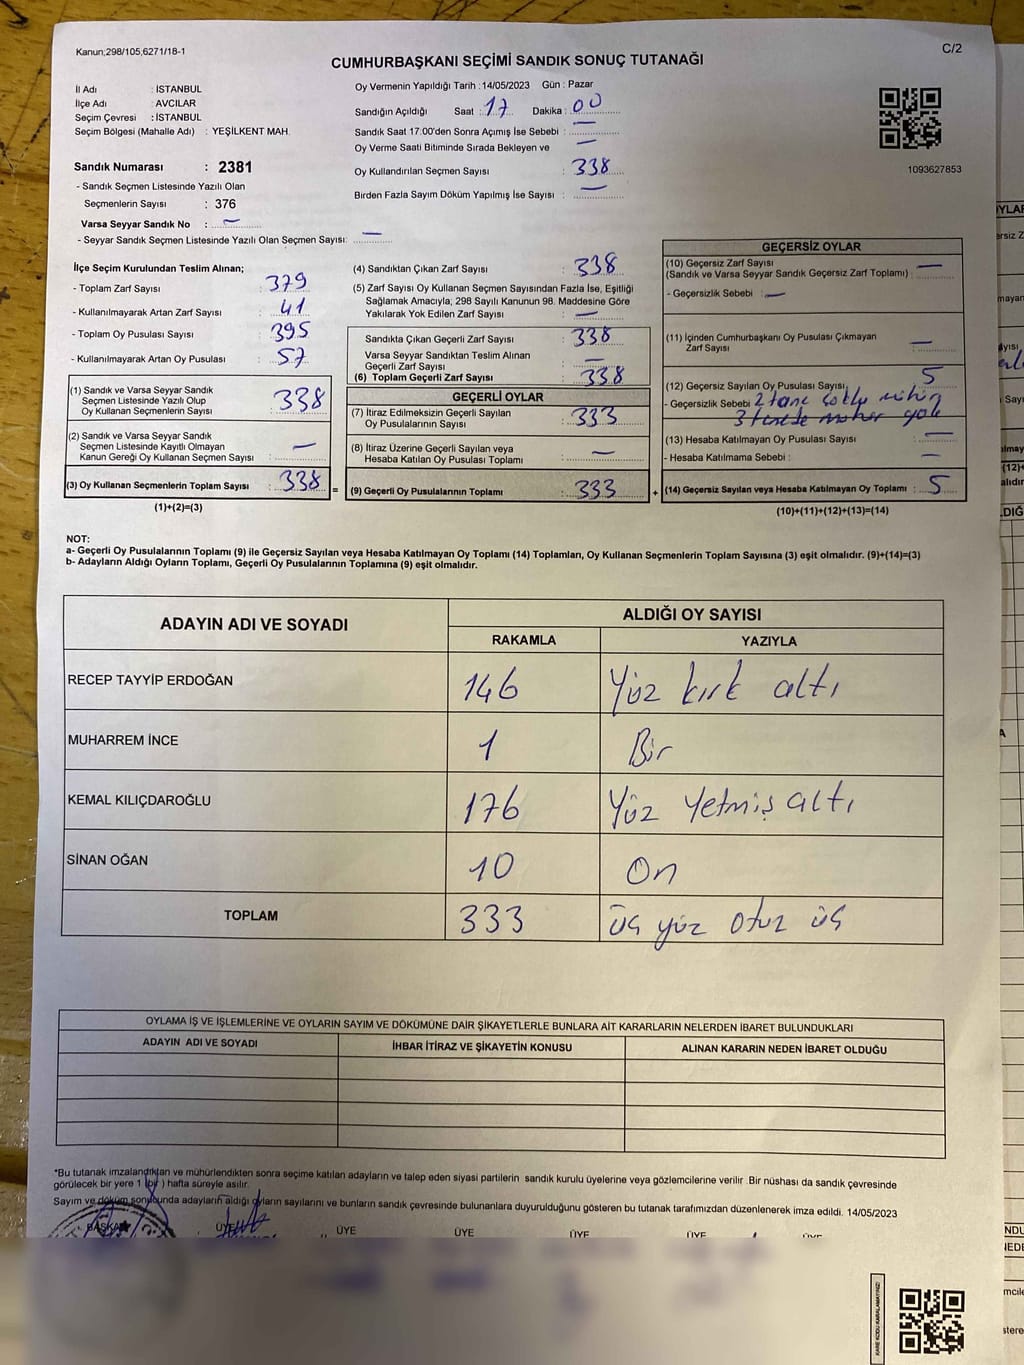 Kanun;298/105,6271/18-1
C/2
CUMHURBAŞKANI SEÇİMİ SANDIK SONUÇ TUTANAĞI
İl Adı : İSTANBUL
İlçe Adı : AVCILAR
Seçim Çevresi : İSTANBUL
Seçim Bölgesi (Mahalle Adı) : YEŞİLKENT MAH.
Sandık Numarası : 2381
- Sandık Seçmen Listesinde Yazılı Olan
Seçmenlerin Sayısı : 376
Varsa Seyyar Sandık No : —
- Seyyar Sandık Seçmen Listesinde Yazılı Olan Seçmen Sayısı: —
Oy Vermenin Yapıldığı Tarih :14/05/2023 Gün : Pazar
Sandığın Açıldığı Saat : 17 Dakika : 00
Sandık Saat 17:00'den Sonra Açımış İse Sebebi : —
Oy Verme Saati Bitiminde Sırada Bekleyen ve —
Oy Kullandırılan Seçmen Sayısı : 338
Birden Fazla Sayım Döküm Yapılmış İse Sayısı : —
1093627853
İlçe Seçim Kurulundan Teslim Alınan;
- Toplam Zarf Sayısı : 379
- Kullanılmayarak Artan Zarf Sayısı : 41
- Toplam Oy Pusulası Sayısı : 395
- Kullanılmayarak Artan Oy Pusulası : 57
(1) Sandık ve Varsa Seyyar Sandık
Seçmen Listesinde Yazılı Olup
Oy Kullanan Seçmenlerin Sayısı : 338
(2) Sandık ve Varsa Seyyar Sandık
Seçmen Listesinde Kayıtlı Olmayan
Kanun Gereği Oy Kullanan Seçmen Sayısı : —
(3) Oy Kullanan Seçmenlerin Toplam Sayısı : 338
(1)+(2)=(3)
(4) Sandıktan Çıkan Zarf Sayısı : 338
(5) Zarf Sayısı Oy Kullanan Seçmen Sayısından Fazla İse, Eşitliği
Sağlamak Amacıyla, 298 Sayılı Kanunun 98. Maddesine Göre
Yakılarak Yok Edilen Zarf Sayısı : —
Sandıkta Çıkan Geçerli Zarf Sayısı : 338
Varsa Seyyar Sandıktan Teslim Alınan
Geçerli Zarf Sayısı : —
(6) Toplam Geçerli Zarf Sayısı : 338
GEÇERLİ OYLAR
(7) İtiraz Edilmeksizin Geçerli Sayılan
Oy Pusulalarının Sayısı : 333
(8) İtiraz Üzerine Geçerli Sayılan veya
Hesaba Katılan Oy Pusulası Toplamı : —
= (9) Geçerli Oy Pusulalarının Toplamı : 333
GEÇERSİZ OYLAR
(10) Geçersiz Zarf Sayısı —
(Sandık ve Varsa Seyyar Sandık Geçersiz Zarf Toplamı) :
- Geçersizlik Sebebi : —
(11) İçinden Cumhurbaşkanı Oy Pusulası Çıkmayan
Zarf Sayısı : —
(12) Geçersiz Sayılan Oy Pusulası Sayısı : 5
- Geçersizlik Sebebi 2 tane çoklu mühür
3 tanede mühür yok
(13) Hesaba Katılmayan Oy Pusulası Sayısı : —
- Hesaba Katılmama Sebebi : —
+ (14) Geçersiz Sayılan veya Hesaba Katılmayan Oy Toplamı : 5
(10)+(11)+(12)+(13)=(14)
NOT:
a- Geçerli Oy Pusulalarının Toplamı (9) ile Geçersiz Sayılan veya Hesaba Katılmayan Oy Toplamı (14) Toplamları, Oy Kullanan Seçmenlerin Toplam Sayısına (3) eşit olmalıdır. (9)+(14)=(3)
b- Adayların Aldığı Oyların Toplamı, Geçerli Oy Pusulalarının Toplamına (9) eşit olmalıdır.
ADAYIN ADI VE SOYADI ALDIĞI OY SAYISI
RAKAMLA YAZIYLA
RECEP TAYYİP ERDOĞAN 146 Yüz kırk altı
MUHARREM İNCE 1 Bir
KEMAL KILIÇDAROĞLU 176 Yüz Yetmiş altı
SİNAN OĞAN 10 On
TOPLAM 333 üç yüz otuz üç
OYLAMA İŞ VE İŞLEMLERİNE VE OYLARIN SAYIM VE DÖKÜMÜNE DAİR ŞİKAYETLERLE BUNLARA AİT KARARLARIN NELERDEN İBARET BULUNDUKLARI
ADAYIN ADI VE SOYADI İHBAR İTİRAZ VE ŞİKAYETİN KONUSU ALINAN KARARIN NEDEN İBARET OLDUĞU
*Bu tutanak imzalandıktan ve mühürlendikten sonra seçime katılan adayların ve talep eden siyasi partilerin sandık kurulu üyelerine veya gözlemcilerine verilir .Bir nüshası da sandık çevresinde
görülecek bir yere 1 (bir) hafta süreyle asılır.
Sayım ve döküm sonucunda adayların aldığı oyların sayılarını ve bunların sandık çevresinde bulunanlara duyurulduğunu gösteren bu tutanak tarafımızdan düzenlenerek imza edildi. 14/05/2023
BAŞKAN ÜYE ÜYE ÜYE ÜYE ÜYE ÜYE
KARE KODU KARALAMAYINIZ!